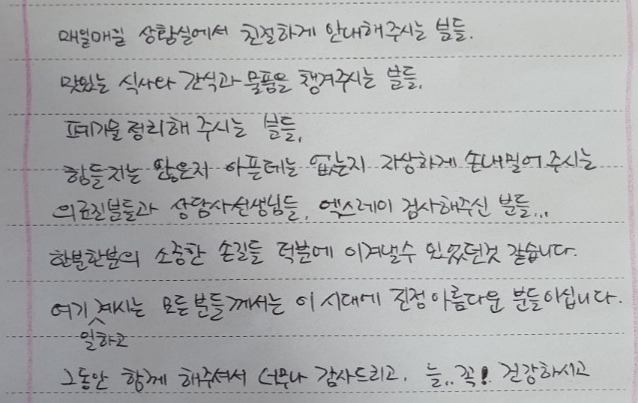 매일매일 상황실에서 친절하게 안내해주시는 분들.
맛있는 식사와 간식과 물품을 챙겨주시는 분들,
폐기물 정리해 주시는 분들,
힘들지는 않은지 아픈데는 없는지 자상하게 손내밀어 주시는
의료진분들과 상담사선생님들, 엑스레이 검사해주신 분들...
한분한분의 소중한 손길들 덕분에 이겨낼수 있었던것 같습니다.
여기 계시는 모든분들께서는 이 시대에 진정 아름다운 분들이십니다.
일하고
그동안 함께 해주셔서 너무나 감사드리고, 늘.. 꼭! 건강하시고